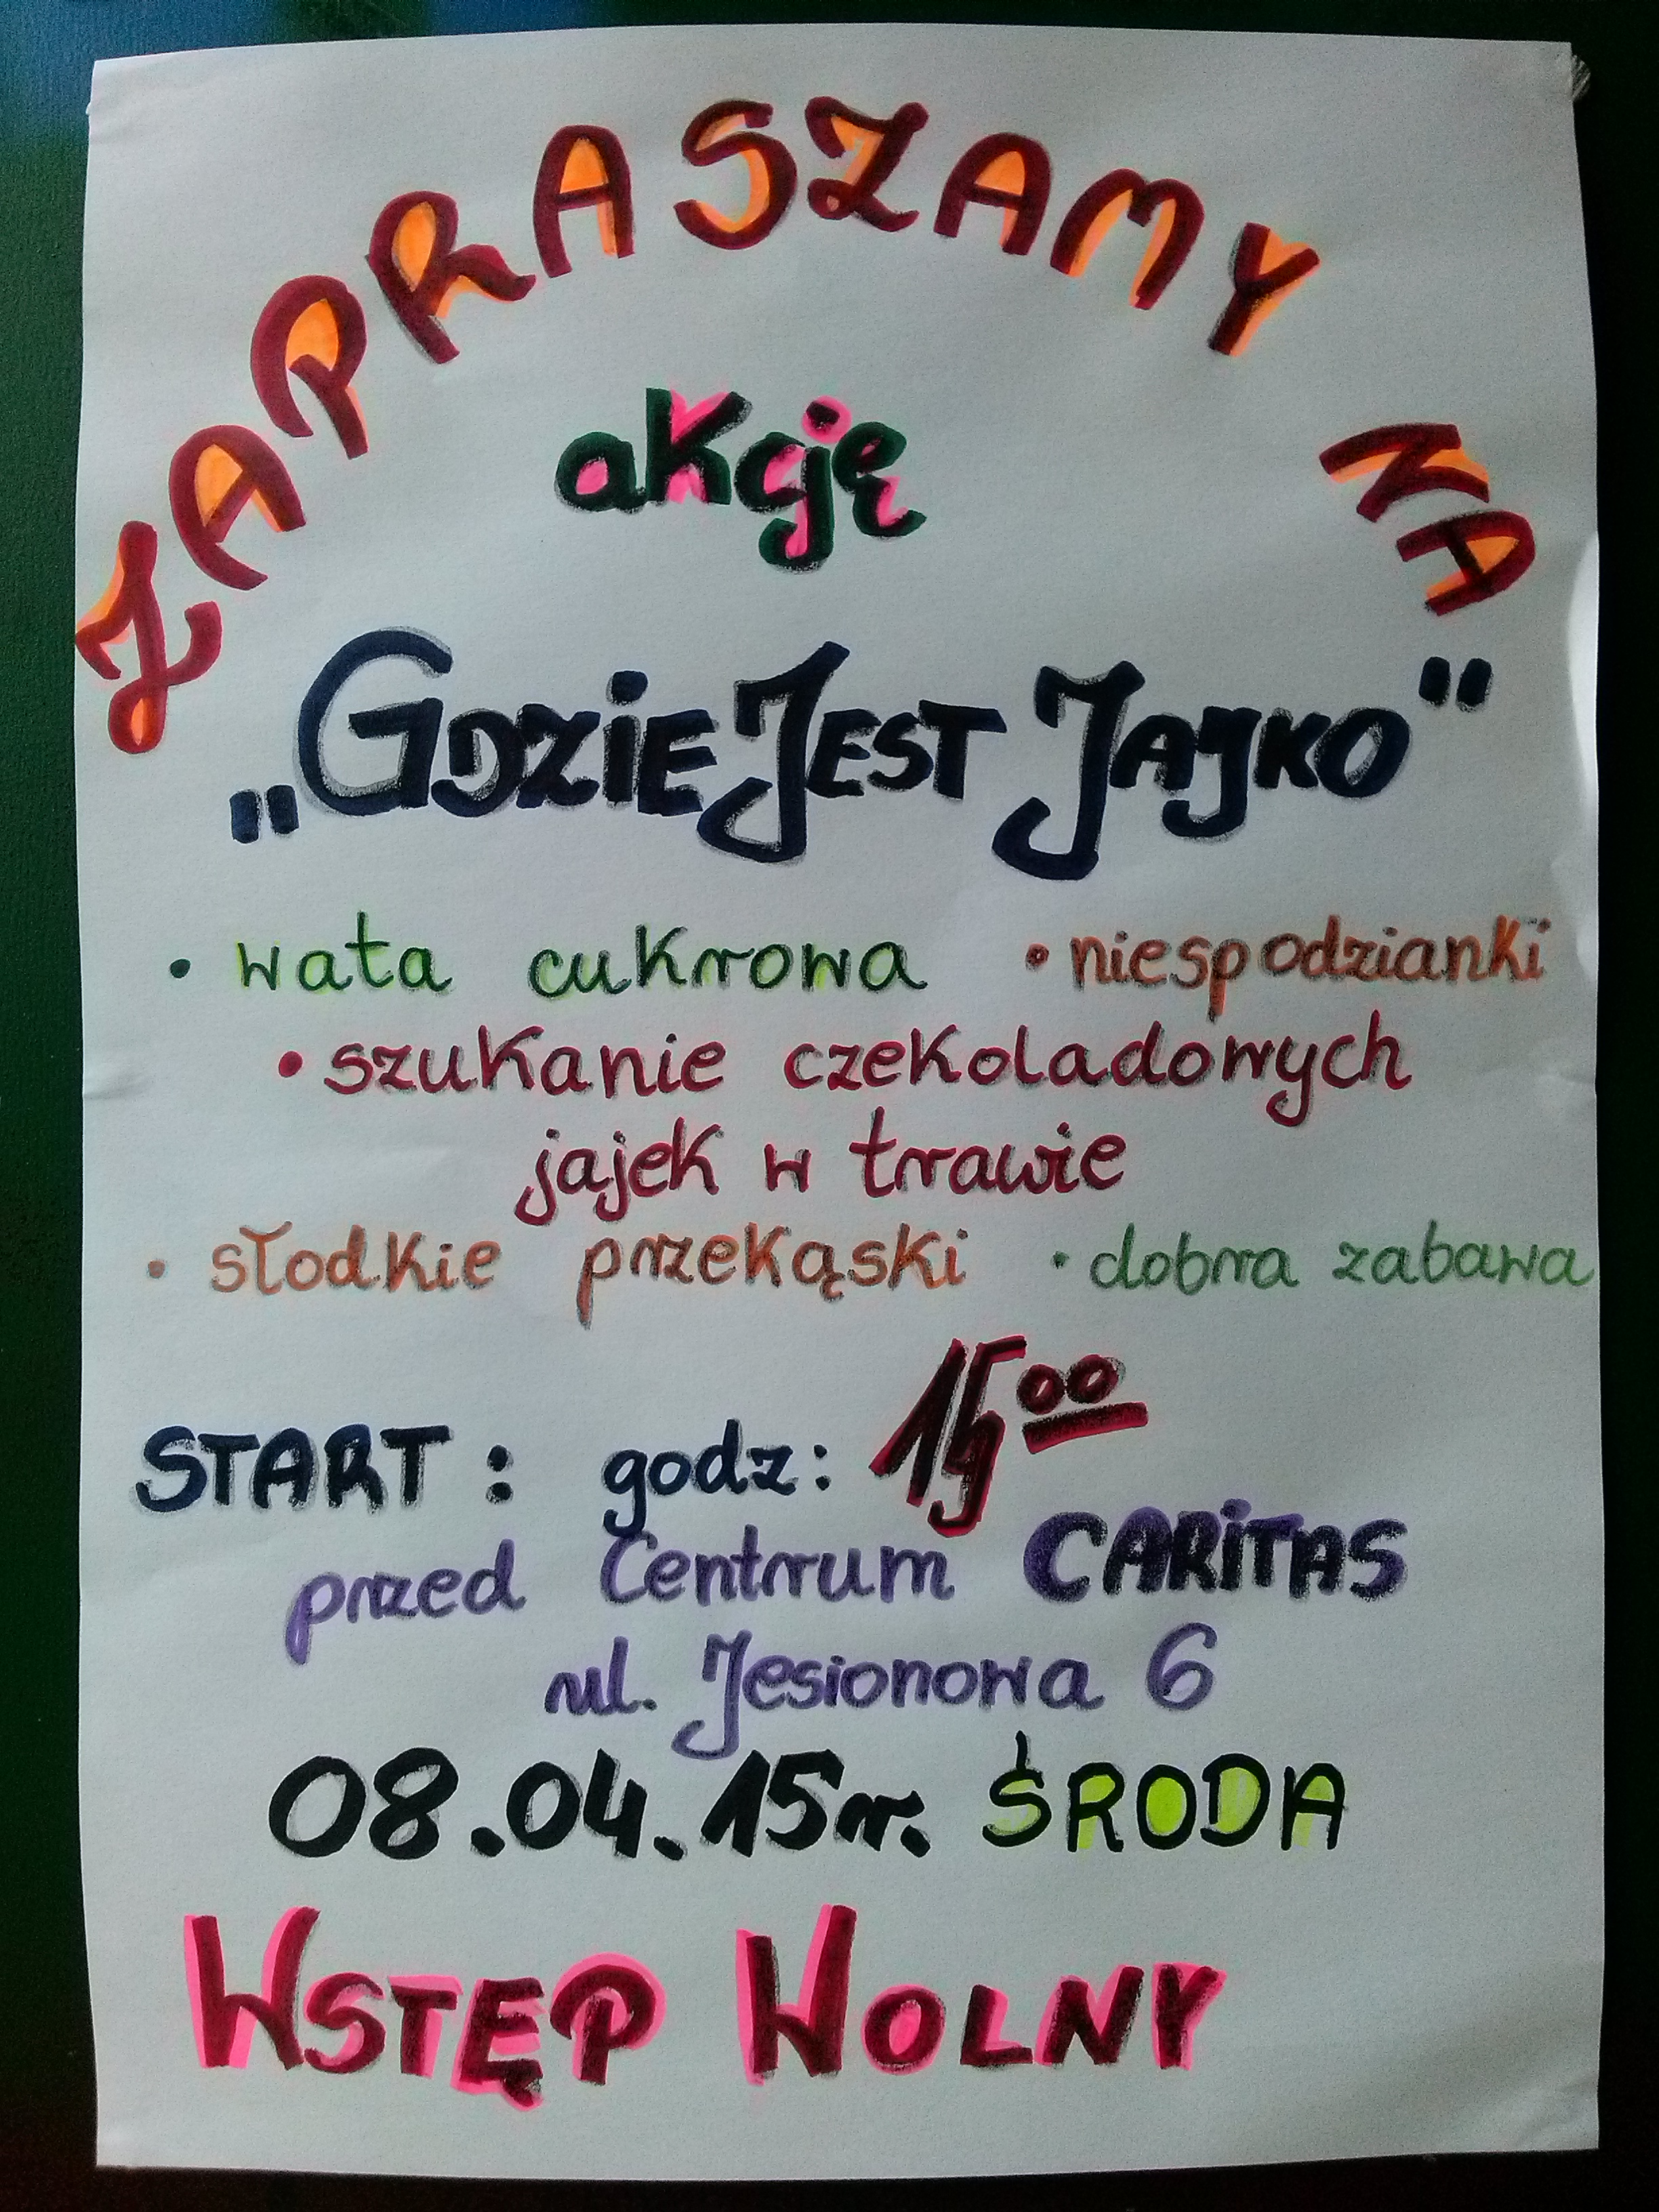 ZAPRASZAMY NA
akcję
„GDZiE JEST JAJKO"
• wata cukrowa • niespodzianki
• szukanie czekoladowych
jajek w trawie
• słodkie przekąski • dobra zabawa
START : godz: 15⁰⁰
przed Centrum CARiTAS
ul. Jesionowa 6
08.04.15r. ŚRODA
WSTĘP WOLNY